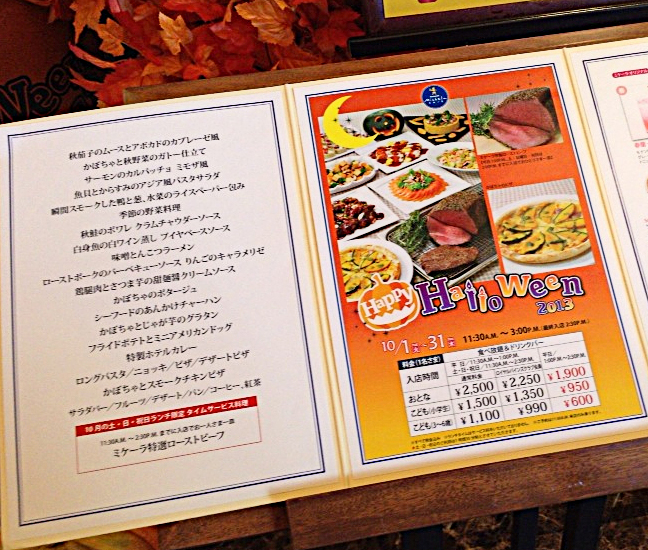 秋茄子のムースとアボカドのカプレーゼ風
かぼちゃと秋野菜のガトー仕立て
サーモンのカルパッチョ ミモザ風
魚貝とからすみのアジア風パスタサラダ
瞬間スモークした鴨と葱、水菜のライスペーパー包み
季節の野菜料理
秋鮭のポワレ クラムチャウダーソース
白身魚の白ワイン蒸し ブイヤベースソース
味噌とんこつラーメン
ローストポークのバーベキューソース りんごのキャラメリゼ
鶏腿肉とさつま芋の甜麺醤クリームソース
かぼちゃのポタージュ
シーフードのあんかけチャーハン
かぼちゃとじゃが芋のグラタン
フライドポテトとミニアメリカンドッグ
特製ホテルカレー
ロングパスタ/ニョッキ/ピザ/デザートピザ
かぼちゃとスモークチキンピザ
サラダバー/フルーツ/デザート/パン/コーヒー、紅茶
10月の土・日・祝日ランチ限定 タイムサービス料理
11:30A.M. 〜 2:30P.M. までに入店でお一人さま一皿
ミケーラ特選ローストビーフ
Happy Halloween
2013
10/1 火 〜 31 木 11:30A.M. 〜 3:00P.M. (最終入店 2:30P.M.)
料金(1名さま) 食べ放題&ドリンクバー
入店時間
平 日/11:30A.M.〜1:00P.M.
土・日・祝日/11:30A.M.〜2:30P.M.
平日/1:00P.M.〜2:30P.M.
通常料金
おとな ¥2,500 ¥2,250 ¥1,900
こども(小学生) ¥1,500 ¥1,350 ¥950
こども(3〜6歳) ¥1,100 ¥990 ¥600